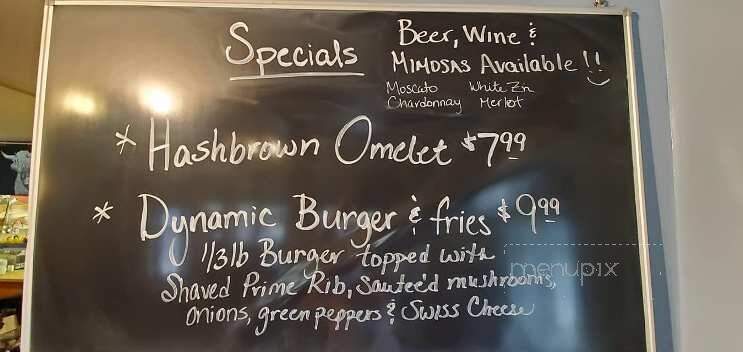 Specials
Beer, Wine &
Mimosas Available!!
Moscato White Zin
Chardonnay Merlot
* Hashbrown Omelet $7.99
* Dynamic Burger & fries $9.99
1/3lb Burger topped with
Shaved Prime Rib, Sautee'd mushrooms,
Onions, green peppers & Swiss Cheese
menupix